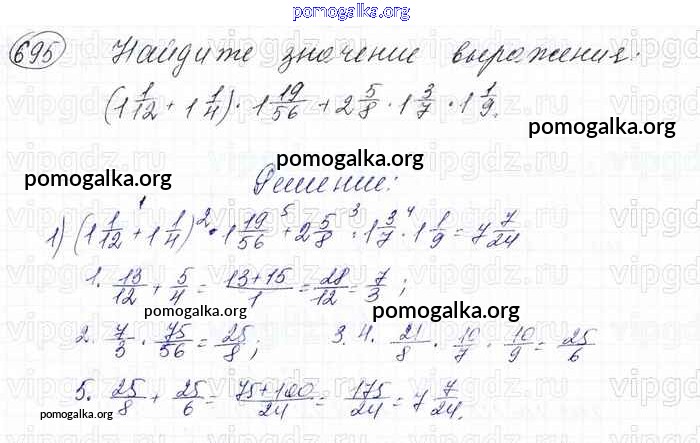 pomogalka.org
695 Найдите значение выражения:
(1 1/12 + 1 1/4) · 1 19/56 + 2 5/8 · 1 3/7 · 1 1/9.
pomogalka.org
pomogalka.org
pomogalka.org
Решение:
1) (1 1/12 +¹ 1 1/4) ²· 1 19/56 +⁵ 2 5/8 ³· 1 3/7 ⁴· 1 1/9 = 7 7/24
1. 13/12 + 5/4 = 13+15/1 = 28/12 = 7/3 ;
pomogalka.org
pomogalka.org
2. 7/3 · 75/56 = 25/8 ; 3. 4. 21/8 · 10/7 · 10/9 = 25/6
5. 25/8 + 25/6 = 75+100/24 = 175/24 = 7 7/24.
pomogalka.org
pomogalka.org